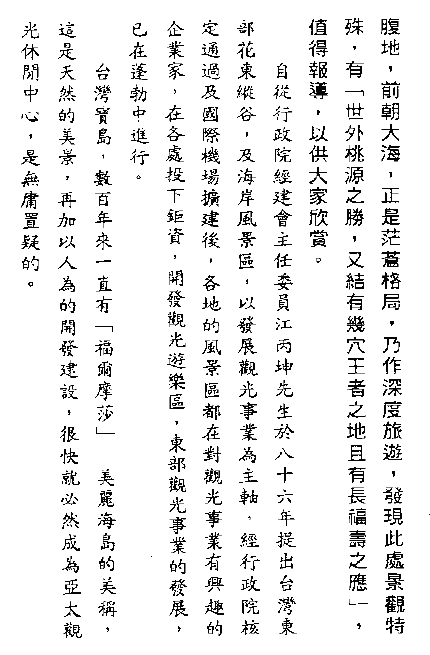 腹地，前朝大海，正是茫蒼格局，乃作深度旅遊，發現此處景觀特
殊，有「世外桃源之勝，又結有幾穴王者之地且有長福壽之應」，
值得報導，以供大家欣賞。
自從行政院經建會主任委員江丙坤先生於八十六年提出台灣東
部花東縱谷，及海岸風景區，以發展觀光事業為主軸，經行政院核
定通過及國際機場擴建後，各地的風景區都在對觀光事業有興趣的
企業家，在各處投下鉅資，開發觀光遊樂區，東部觀光事業的發展，
已在蓬勃中進行。
台灣寶島，數百年來一直有「福爾摩莎」 美麗海島的美稱，
這是天然的美景，再加以人為的開發建設，很快就必然成為亞太觀
光休閒中心，是無庸置疑的。